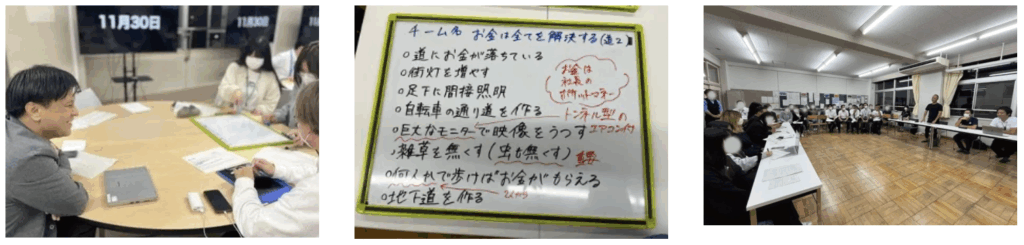 11月30日
チーム名 お金は全てを解決する(道2)
○道にお金が落ちている
○街灯を増やす
○足下に間接照明
○自転車の通り道を作る
トンネル型の
エアコン付
○巨大なモニターで映像をうつす
○雑草を無くす(虫も無くす)
重要
○何人かで歩けばお金がもらえる
○地下道を作る
お金は
社長の